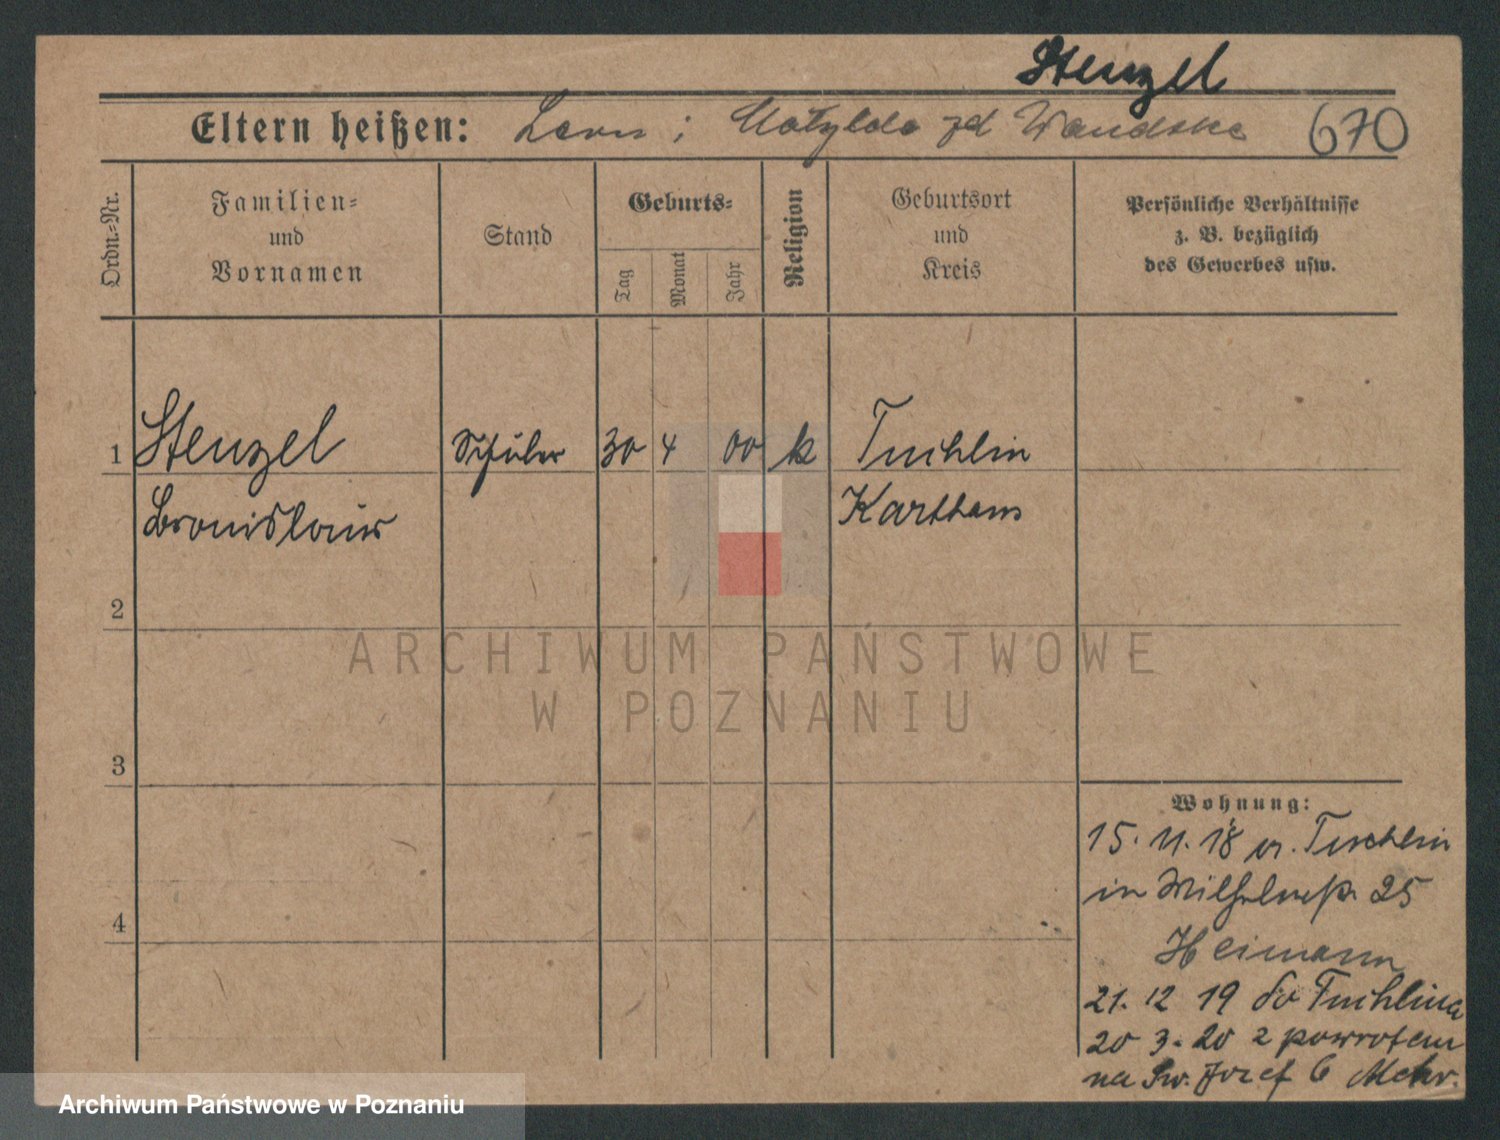 Stenzel
Eltern heißen: Leon i Matylda zd Wandtke 670
Ordn.-Nr.
Familien-
und
Vornamen
Stand
Geburts-
Tag
Monat
Jahr
Religion
Geburtsort
und
Kreis
Persönliche Verhältnisse
z. B. bezüglich
des Gewerbes usw.
1 Stenzel Schüler 30 4 00 k Tuchlin
Bronislaus Karthaus
2
ARCHIWUM PAŃSTWOWE
W POZNANIU
3
Wohnung:
15. 11. 18 v. Tuchlin
in Wilhelmstr 25
4
Heimann
21. 12 19 do Tuchlina
20 3. 20 z powrotem
na Św. Józef 6
Archiwum Państwowe w Poznaniu